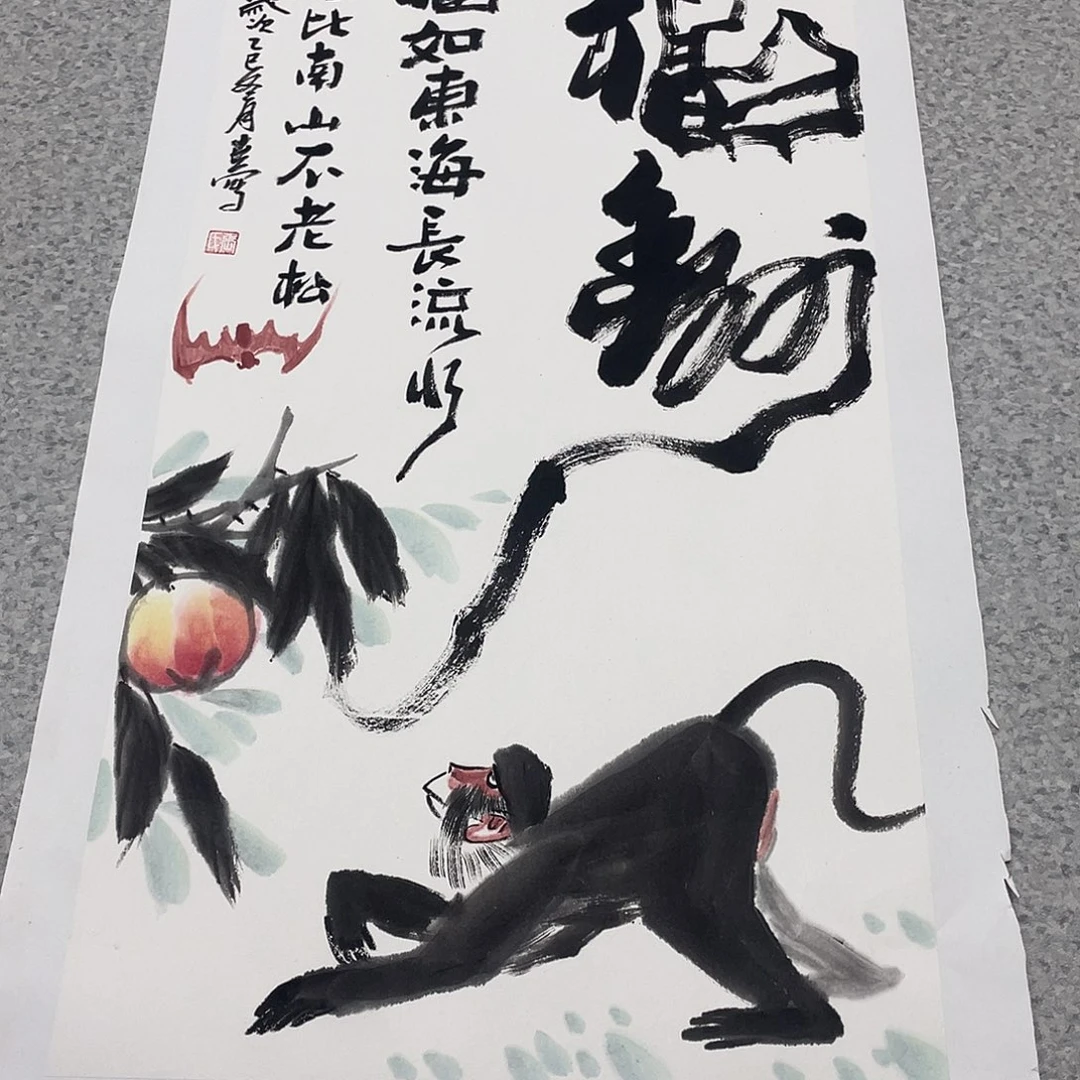 福壽
福如東海長流水
比南山不老松
歲次乙巳冬月